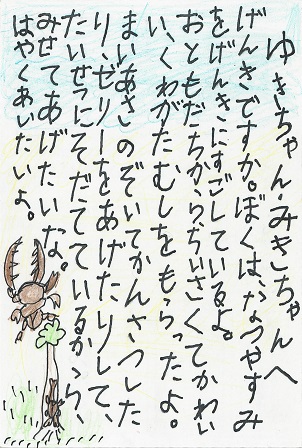 ゆきちゃん・みきちゃんへ
げんきですか。ぼくは、なつやすみ
をげんきにすごしているよ。
おともだちから、ちいさくてかわい
い、くわがたむしをもらったよ。
まいあさのぞいてかんさつした
り、ゼリーをあげたりして、
たいせつにそだてているから、
みせてあげたいな。
はやくあいたいよ。